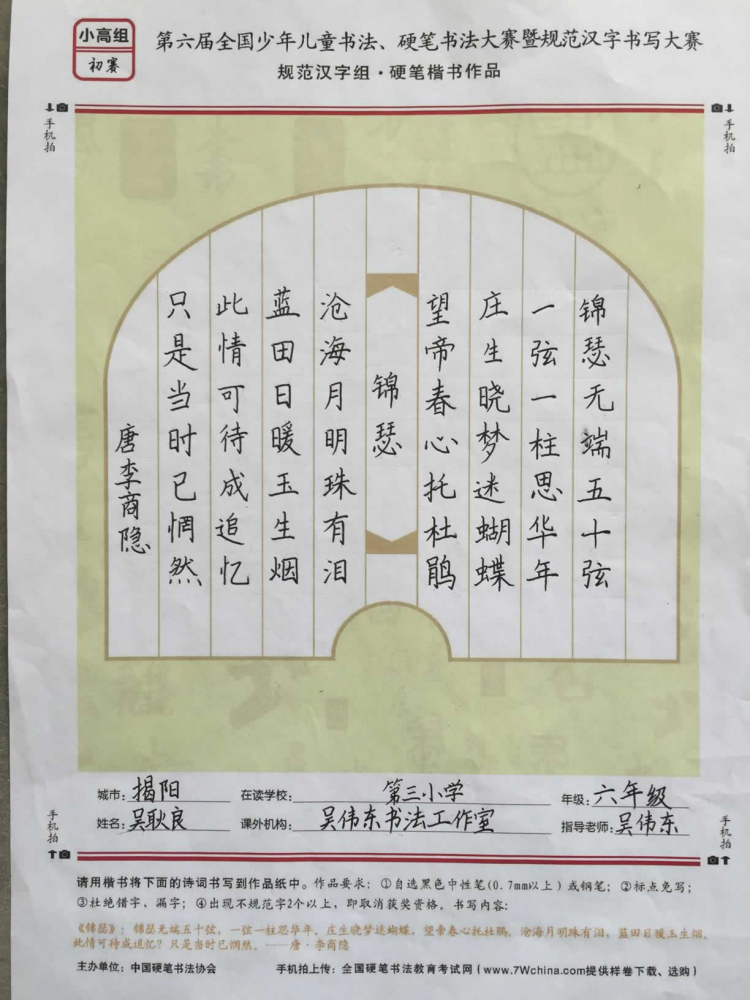 小高组
初赛
第六届全国少年儿童书法、硬笔书法大赛暨规范汉字书写大赛
规范汉字组·硬笔楷书作品
手机拍
手机拍
锦瑟无端五十弦
一弦一柱思华年
庄生晓梦迷蝴蝶
望帝春心托杜鹃
锦瑟
沧海月明珠有泪
蓝田日暖玉生烟
此情可待成追忆
只是当时已惘然
唐李商隐
城市:揭阳 在读学校:第三小学 年级:六年级
姓名:吴耿良 课外机构:吴伟东书法工作室 指导老师:吴伟东
手机拍
手机拍
请用楷书将下面的诗词书写到作品纸中。作品要求:①自选黑色中性笔(0.7mm以上)或钢笔;②标点免写;
③杜绝错字、漏字;④出现不规范字2个以上,即取消获奖资格。书写内容:
《锦瑟》:锦瑟无端五十弦,一弦一柱思华年。庄生晓梦迷蝴蝶,望帝春心托杜鹃。沧海月明珠有泪,蓝田日暖玉生烟。
此情可待成追忆?只是当时已惘然。——唐·李商隐
主办单位:中国硬笔书法协会 手机拍上传:全国硬笔书法教育考试网(www.7Wchina.com提供样卷下载、选购)